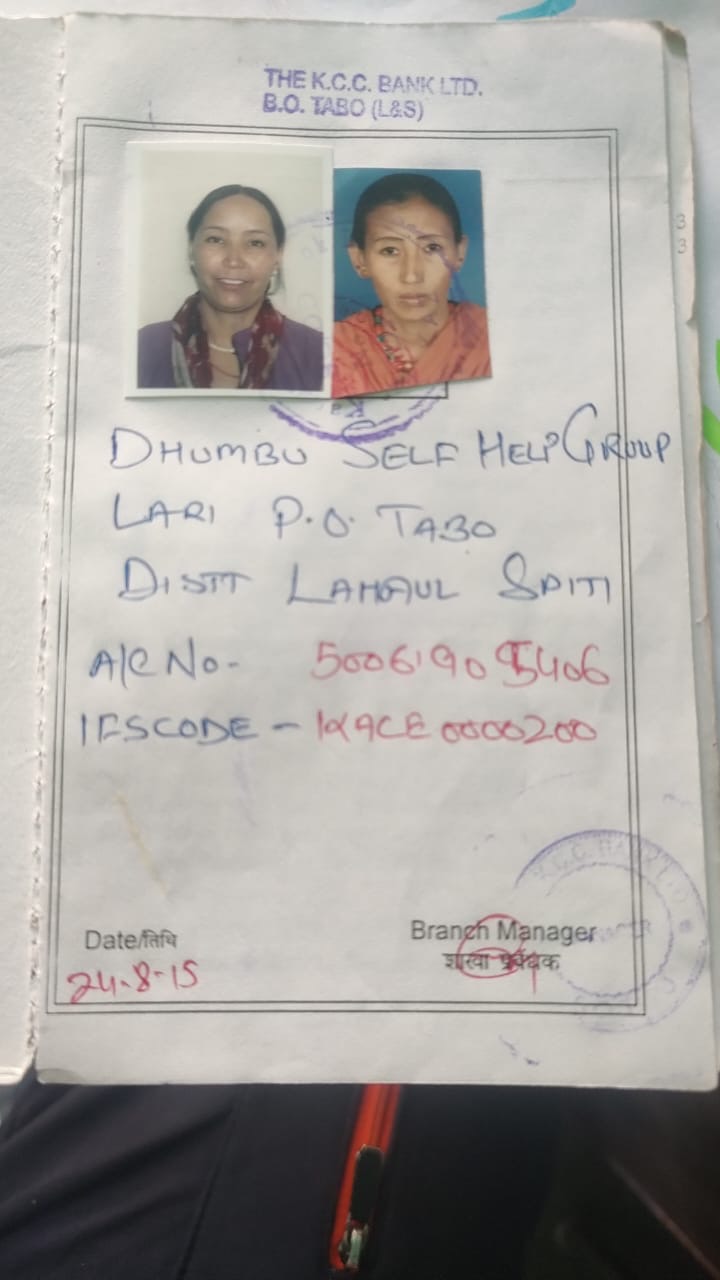 THE K.C.C. BANK LTD.
B.O. TABO (L&S)
DHUMBU SELF HELP GROUP
LARI P.O. TABO
DISTT LAHAUL SPITI
A/C No- 50061905406
IFSCODE - KACE0000200
K.C.C. BANK L
Date/तिथि
24-8-15
Branch Manager
शाखा प्रबंधक